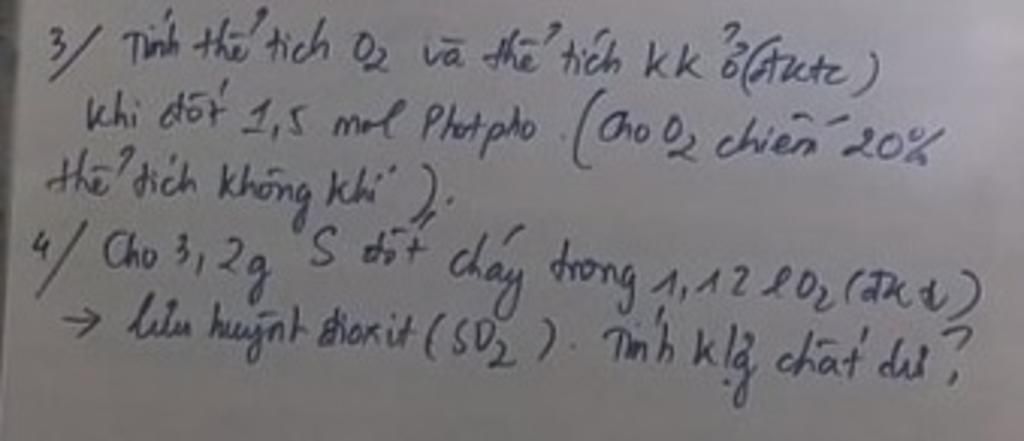 3/ Tính thể tích O2 và thể tích kk ở (đktc)
khi đốt 1,5 mol Photpho. (Cho O2 chiếm 20%
thể tích không khí).
4/ Cho 3,2g S đốt cháy trong 1,12 l O2 (đktc)
→ lưu huỳnh đioxit (SO2). Tính klg chất dư?